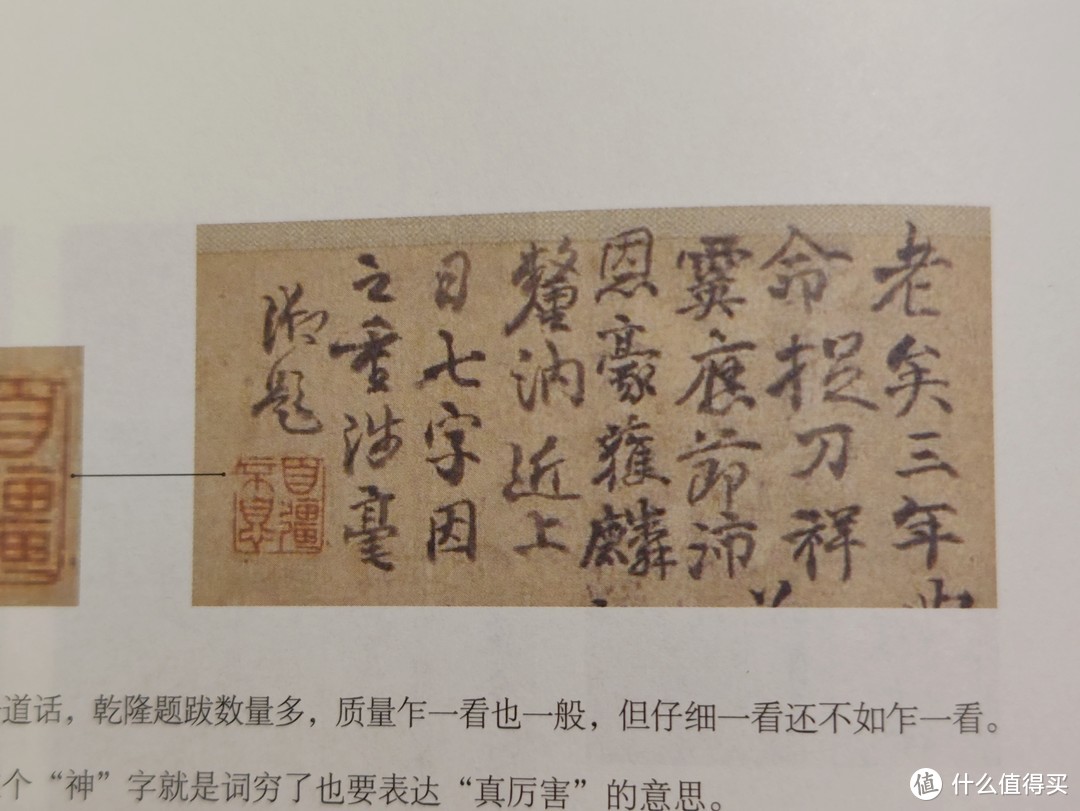 老矣三年
命捉刀祥
霙應節沛
恩豪獲麟
釐汭近上
日七字因
之書涉毫
御題
自彊
不息
自彊
道话，乾隆题跋数量多，质量乍一看也一般，但仔细一看还不如乍一看。
个“神”字就是词穷了也要表达“真厉害”的意思。
值 什么值得买